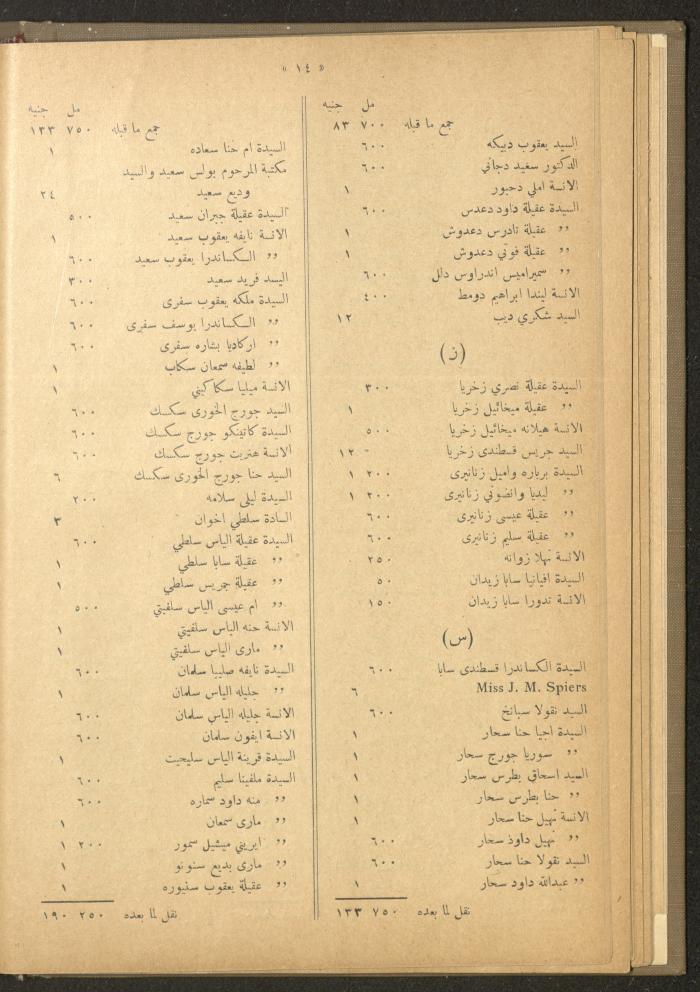 « ١٤ »
مل جنيه
جمع ما قبله ٧٠٠ ٨٣
السيد يعقوب دبيكه ٦٠٠
الدكتور سعيد دجاني ٦٠٠
الانسة املي دحبور ١
السيدة عقيلة داود دعدس ٦٠٠
٫٫ عقيلة تادرس دعدوش ١
٫٫ عقيلة فوتي دعدوش ١
٫٫ سميراميس اندراوس دلل ٦٠٠
الانسة ليندا ابراهيم دومط ٤٠٠
السيد شكري ديب ١٢
(ز)
السيدة عقيلة نصري زخريا ٣٠٠
٫٫ عقيلة ميخائيل زخريا ١
الانسة هيلانه ميخائيل زخريا ٥٠٠
السيد جريس قسطندى زخريا - ١٢
السيدة برباره واميل زنانيرى ٢٠٠ ١
٫٫ ليديا وانضوني زنانيرى ٢٠٠ ١
٫٫ عقيلة عيسى زنانيرى ٦٠٠
٫٫ عقيلة سليم زنانيرى ٦٠٠
الانسة نهلا زوانه ٢٥٠
السيدة افيانيا سابا زيدان ٥٠
الانسة تدورا سابا زيدان ١٥٠
(س)
السيدة الكساندرا قسطندى سابا ٦٠٠
Miss J. M. Spiers ٦
السيد نقولا سبانخ ٦٠٠
السيدة اجيا حنا سحار ١
٫٫ سوريا جورج سحار ١
السيد اسحاق بطرس سحار ١
٫٫ حنا بطرس سحار ١
الانسة نهيل حنا سحار ١
٫٫ نهيل داود سحار ٦٠٠
السيد نقولا حنا سحار ٦٠٠
٫٫ عبدالله داود سحار ١
نقل لما بعده ٧٥٠ ١٣٣
مل جنيه
جمع ما قبله ٧٥٠ ١٣٣
السيدة ام حنا سعاده ١
مكتبة المرحوم بولس سعيد والسيد
وديع سعيد ٢٤
السيدة عقيلة جبران سعيد ٥٠٠
الانسة نايفه يعقوب سعيد ١
٫٫ الكساندرا يعقوب سعيد ٦٠٠
اليسد فريد سعيد ٣٠٠
السيدة ملكه يعقوب سفرى ٦٠٠
٫٫ الكساندرا يوسف سفرى ٦٠٠
٫٫ اركاديا بشاره سفرى ٦٠٠
٫٫ لطيفه سمعان سكاب ١
الانسة ميليا سكاكيني ١
السيد جورج الخورى سكسك ٦٠٠
السيدة كاتينكو جورج سكسك ٦٠٠
الانسة هنريت جورج سكسك ٦٠٠
السيد حنا جورج الخورى سكسك ٦
السيدة ليلى سلامه ٢٠٠
السادة سلطي اخوان ٣
السيدة عقيلة الياس سلطي ٦٠٠
٫٫ عقيلة سابا سلطي ١
٫٫ عقيلة جريس سلطي ١
٫٫ ام عيسى الياس سلفيتي ٥٠٠
الانسة حنه الياس سلفيتي ١
٫٫ مارى الياس سلفيتي ١
السيدة نايفه صليبا سلمان ٦٠٠
٫٫ جليله الياس سلمان ١
الانسة جليله الياس سلمان ٦٠٠
الانسة ايفون سلمان ٦٠٠
السيدة قرينة الياس سليحيت ١
السيدة ملفينا سليم ٦٠٠
٫٫ منه داود سماره ٦٠٠
٫٫ مارى سمعان ١
٫٫ ايريني ميشيل سمور ٢٠٠ ١
٫٫ مارى بديع سنونو ١
٫٫ عقيلة يعقوب سنيوره ١
نقل لما بعده ٢٥٠ ١٩٠